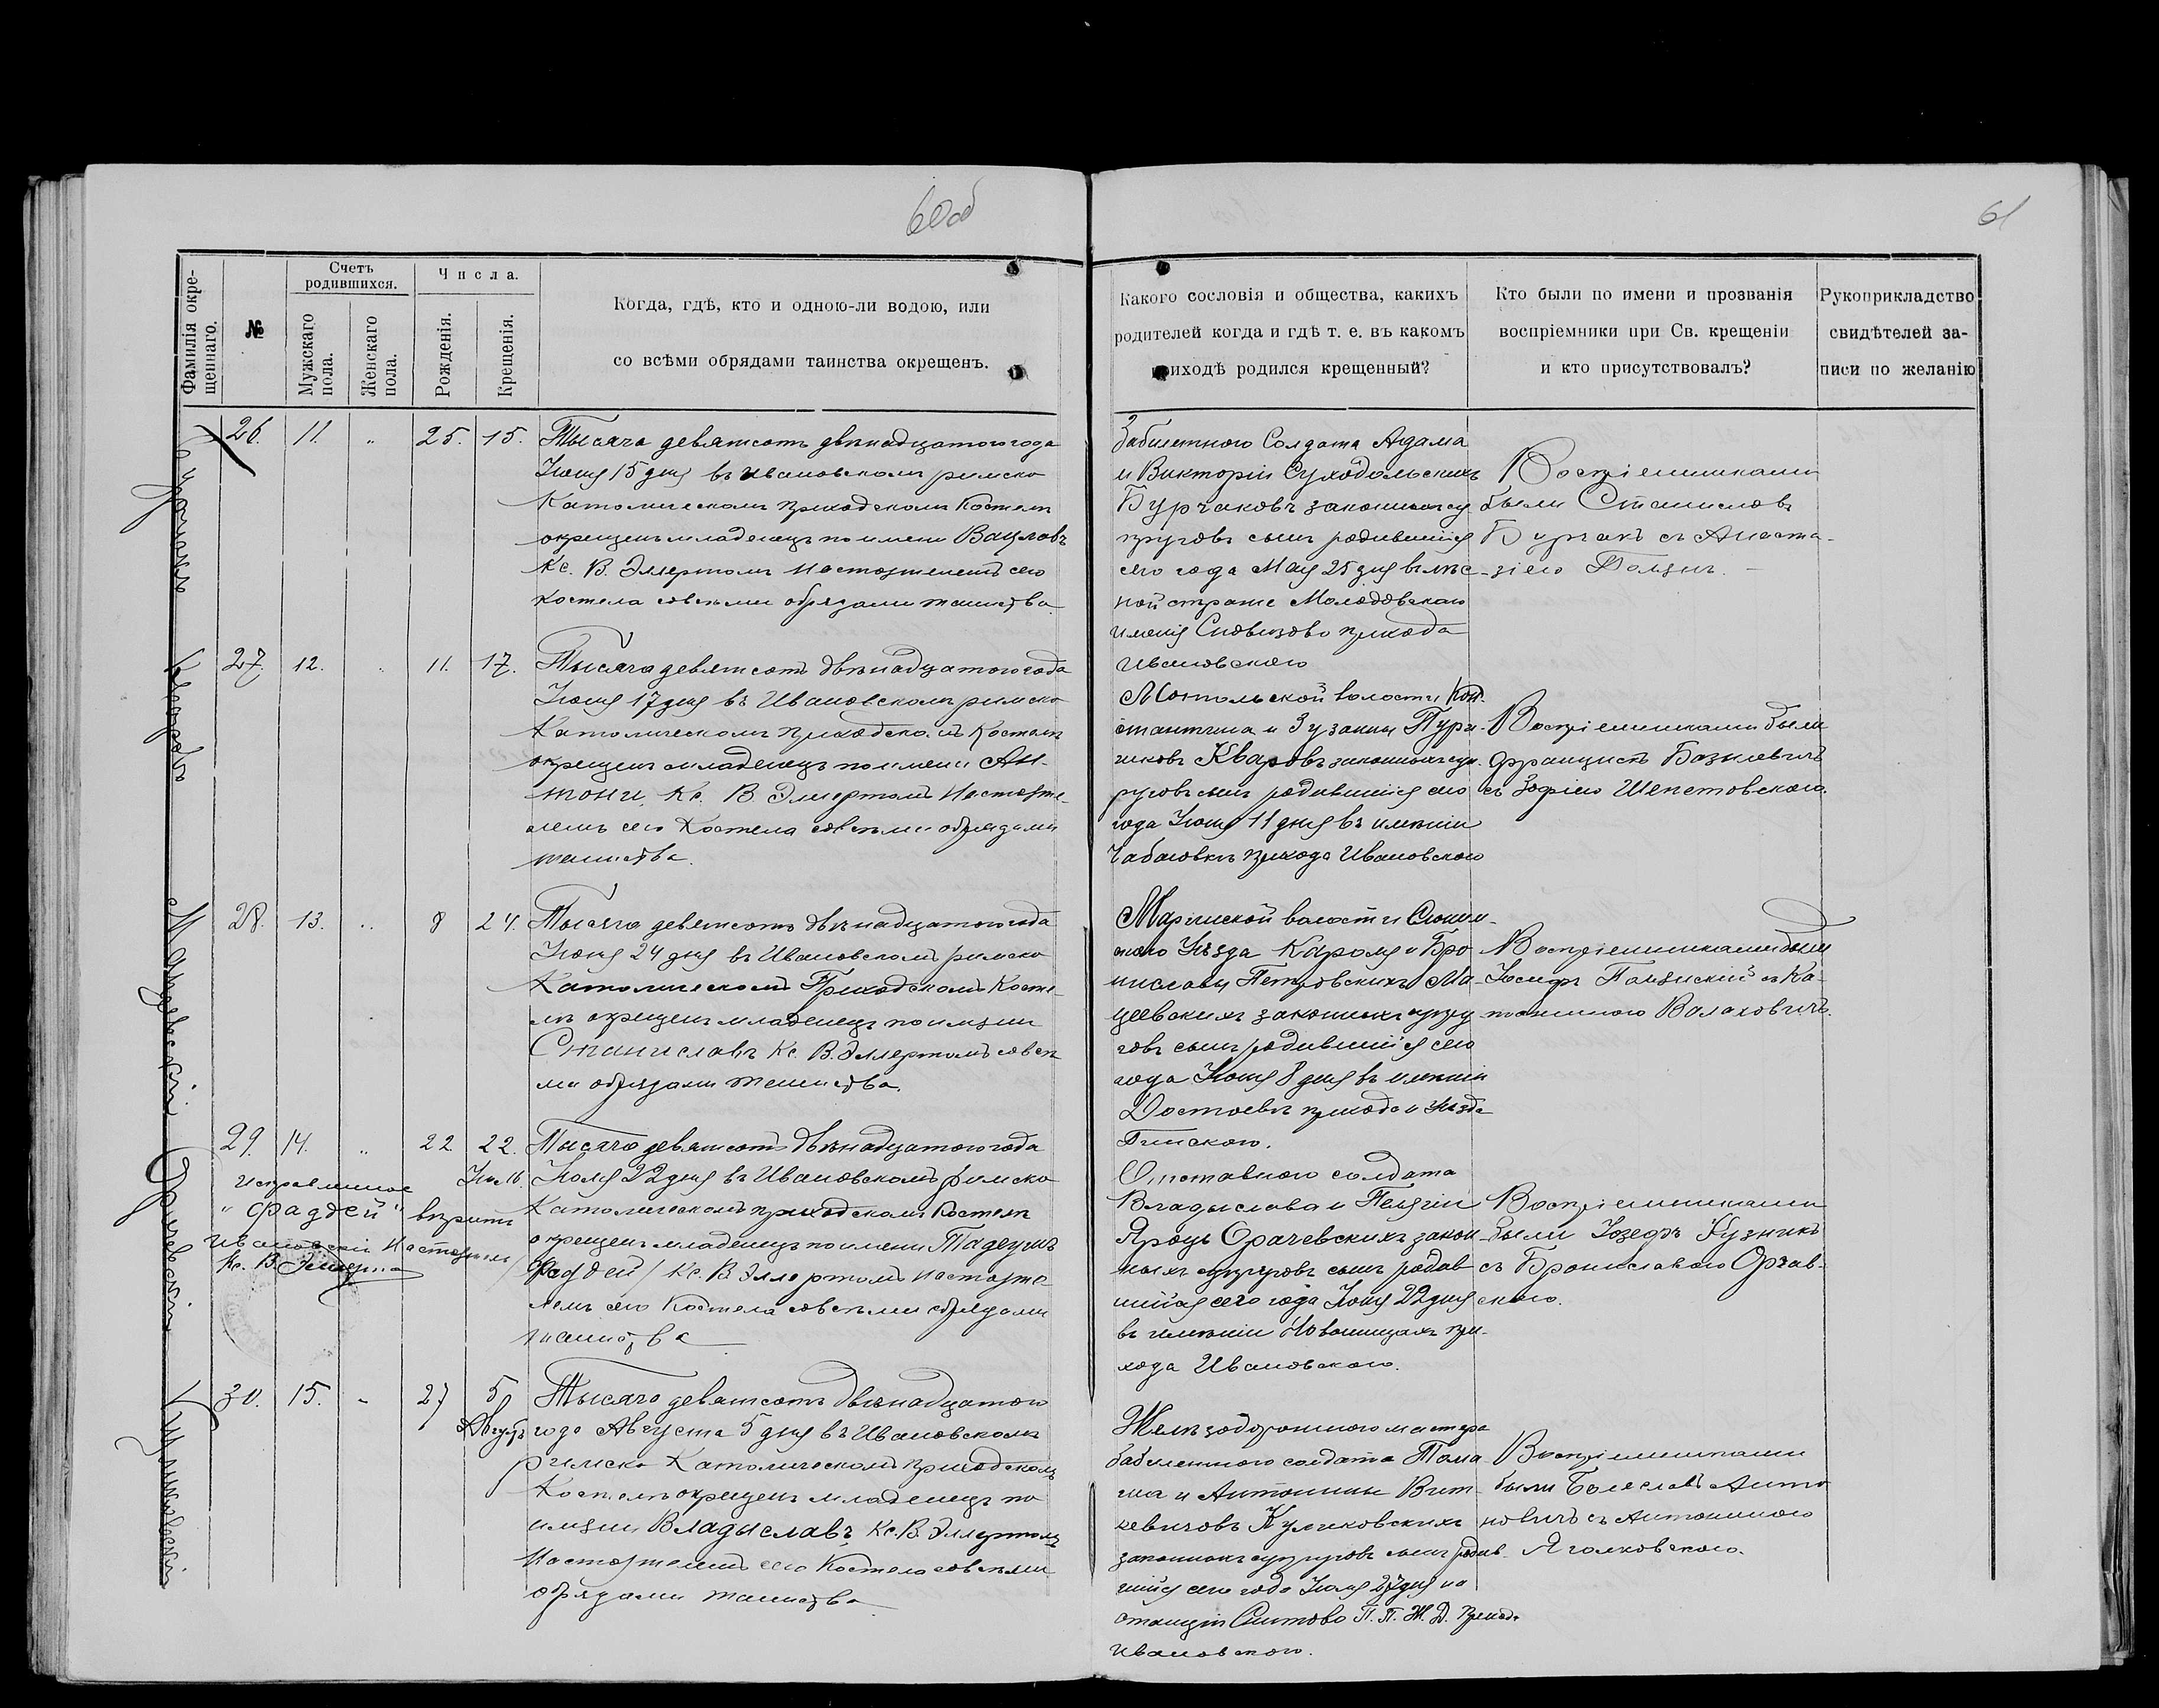 60об
61
Фамилія окре-
щеннаго.
№
Счетъ
родившихся.
Мужскаго
пола.
Женскаго
пола.
Числа.
Рожденія.
Крещенія.
Когда, гдѣ, кто и одною-ли водою, или
со всѣми обрядами таинства окрещенъ.
Какого сословія и общества, какихъ
родителей когда и гдѣ т. е. въ какомъ
приходѣ родился крещенный?
Кто были по имени и прозванія
воспріемники при Св. крещеніи
и кто присутствовалъ?
Рукоприкладство
свидѣтелей за-
писи по желанію
26. 11. „ 25. 15.
Тысяча девятсотъ двѣнадцатого года
Іюня 15 дня въ Ивановскомъ римско
Католическомъ приходскомъ Костелѣ
окрещенъ младенецъ по имени Вацлавъ
Кс. В. Эллертомъ Настоятелемъ сего
костела совсѣми обрядами таинства
Забилетного Солдата Адама
и Викторіи Суходольскихъ
Бурчаковъ законныхъ су
пруговъ сынъ родившійся
сего года Мая 25 дня въ лѣс-
ной страже Молодовскаго
имѣнія прихода
Ивановского
Воспріемниками
были Станиславъ
Бурчакъ съ Анаста-
зіею
27. 12. „ 11. 17.
Кваровъ
Тысяча девятсотъ двѣнадцатого года
Іюня 17 дня въ Ивановскомъ римско
Католическомъ приходскомъ Костелѣ
окрещенъ младенецъ по имени Ан-
тони Кс. В. Эллертомъ Настояте-
лемъ сего Костела совсѣми обрядами
таинства.
Мотольской волости Кон-
стантина и Зузанны Пури-
чиковъ Кваровъ законныхъ суп-
руговъ сынъ родившійся сего
года Іюня 11 дня въ имѣніи
прихода Ивановского
Воспріемниками были
Францискъ Базилевичъ
съ Зофіею Шепетовского.
28. 13. „ 8 24.
Мацеевскій
Тысяча девятсотъ двѣнадцатого года
Іюня 24 дня въ Ивановскомъ римско
Католическомъ Приходскомъ Косте-
лѣ окрещенъ младенецъ по имени
Станиславъ Кс. В. Эллертомъ совсѣ
ми обрядами таинства.
волости Слоним-
ского Уѣзда Кароля и Бро
ниславы Петровскихъ Ма-
цеевскихъ законныхъ супру
говъ сынъ родившійся сего
года Іюня 8 дня въ имѣніи
Достоевѣ прихода и Уѣзда
Пинского.
Воспріемниками были
Іосифъ съ Ка-
Валаховичъ.
29. 14. „ 22 22.
Іюля.
Орачевскій
исправленное
„Фаддей“ вѣрить
Ивановскій Настоятель
Кс. В. Эллертъ
Тысяча девятсотъ двѣнадцатого года
Іюля 22 дня въ Ивановскомъ римско
Католическомъ приходскомъ Костелѣ
окрещенъ младенецъ по имени Тадеушъ
/Фаддей/ Кс. В Эллертомъ Настояте-
лемъ сего Костела совсѣми обрядами
таинства
Отставного солдата
Владыслава и Пелягіи
Яроцъ Орачевскихъ закон
ныхъ супруговъ сынъ родив
шійся сего года Іюня 22 дня
въ имѣніи при-
хода Ивановского.
Воспріемниками
были Іозефъ Кузникъ
съ Брониславою Оржов-
ского.
30. 15. „ 27 5
Августа
Куликовскій
Тысяча девятсотъ двѣнадцатого
года Августа 5 дня въ Ивановскомъ
римско Католическомъ приходскомъ
Костелѣ окрещенъ младенецъ по
имени Владыславъ Кс. В. Эллертомъ
Настоятелемъ сего Костела совсѣми
обрядами таинства
Желѣзодорожного мастера
забилетного солдата Тома
ша и Антонины Вит-
кевичовъ Куликовскихъ
законныхъ супруговъ сынъ родив-
шійся сего года Іюля 27 дня на
станціи Снитово П. П. Ж. Д. прихода
Ивановского.
Воспріемниками
были Болеславъ Анто
новичъ съ Антониною
Яголковского.